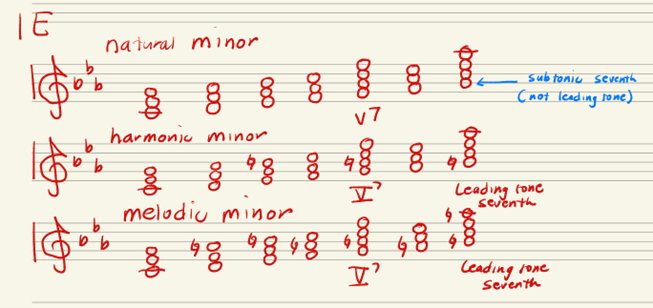 1E
natural minor
subtonic seventh
(not leading tone)
v7
harmonic minor
V7
Leading tone
seventh
melodic minor
V7
Leading tone
Seventh